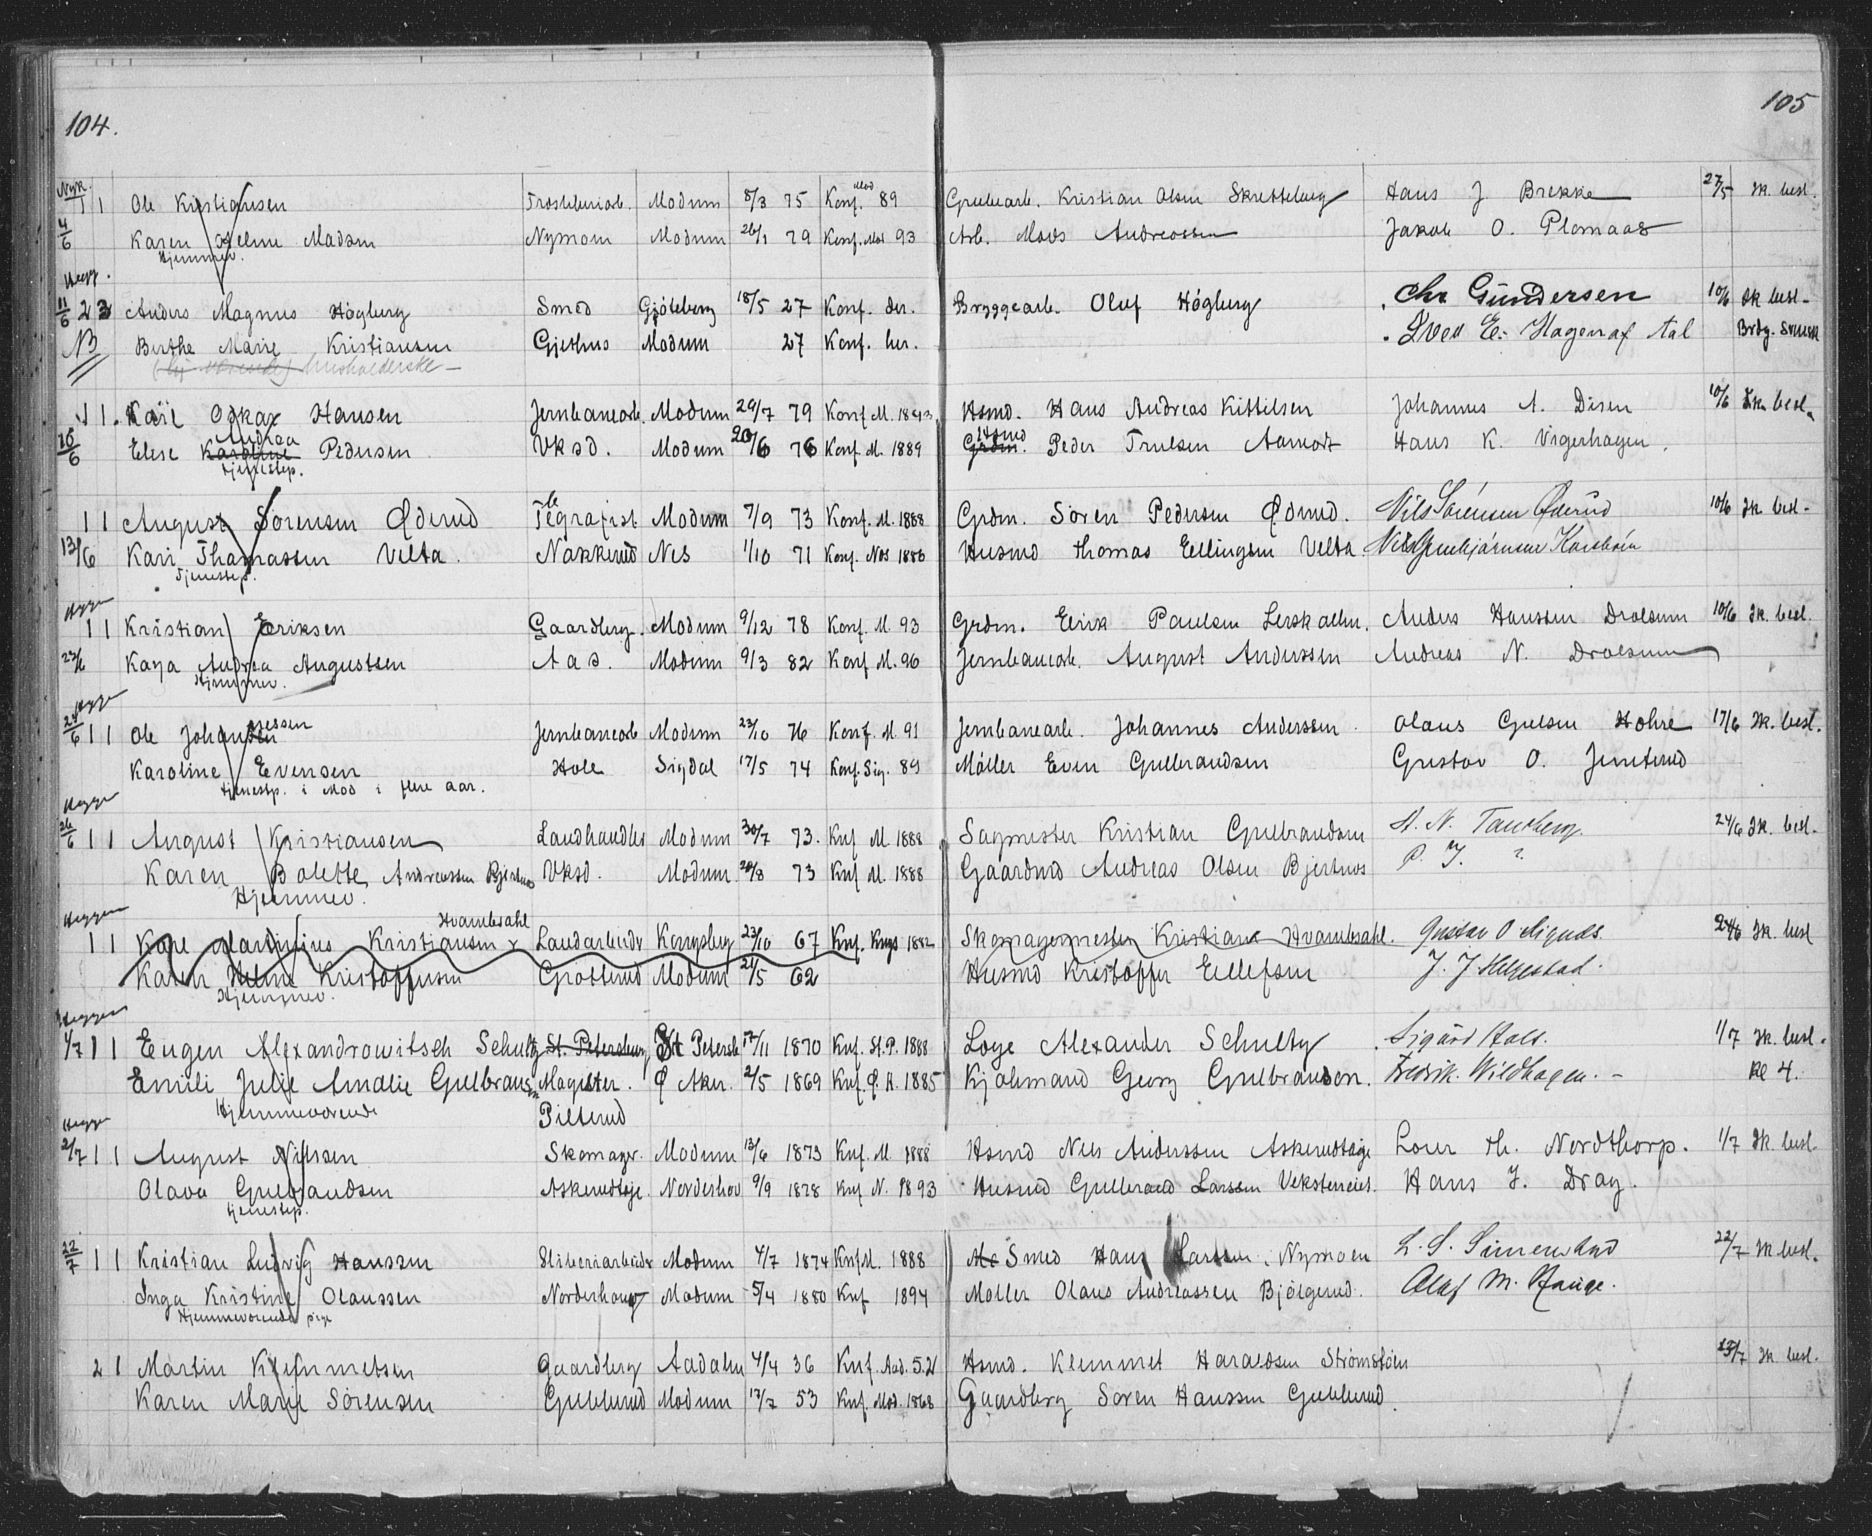 104.
105
Nyk.
1 1 Ole Kristiansen Modum 8/3 75 Konf. Mod 89 Kristian Olsen Hans J Brekke 27/5 Sk. besl.
4/6 Karen Helene Madsen Nymoen Modum 26/1 79 Konf. Mod 93 Arb. Mads Andreassen Jakob O. Plomaas
Hjemmev.
Hegg.
11/6 2 3 Anders Magnus Högberg Smed Gjöteborg 18/5 27 Konf. der. Bryggearb. Oluf Högberg Chr Gundersen 10/6 Sk besl.
NB Berthe Marie Kristiansen Gjethus Modum 27 Konf. her. Sven E. Hagen af Aal Brdg. Svensk
husholderske
1 1. Karl Oskar Hansen Jernbanearb. Modum 29/7 79 Konf M. 1893. Hsmd. Hans Andreas Kittilsen Johannes A. Disen 10/6 Sk. besl.
Andrea Hsmd
25/6 Elise Karoline Pedersen Vksd. Modum 20/6 76 Konf M. 1889 Grdm. Peder Truelsen Aamodt Hans K. Vigerhagen.
tjenestep.
1 1 August Sörensen Öderud Telegrafist Modum 7/9 73 Konf. M. 1888 Grdm. Sören Pedersen Öderud. Nils Sörensen Öderud 10/6 Sk besl.
13/6 Kari Thomassen Velta. Nakkerud Nes 1/10 71 Konf. Nes 1886 Husmd Thomas Ellingsen Velta
Tjenestep.
Heggen
1 1 Kristian Eriksen Gaardbrg. Modum 9/12 78 Konf. M. 93 Grdm. Erik Paulsen Anders Hanssen Drolsum 10/6 Sk. besl.
23/6 Kaja Andrea Augustsen Aas. Modum 9/3 82 Konf M. 96 Jernbanearb. August Anderssen Andreas N. Drolsum
Hjemmev.
Heggen
24/6 1 1 Ole Johannessen Jernbanearb Modum 23/10 76 Konf. M. 91 Jernbanearb. Johannes Anderssen Olaus Guelsen Hohre 17/6 Sk. besl.
Karoline Evensen Hole Sigdal 17/5 74 Konf. Sig. 89 Möller Even Gulbrandsen Gustav O.
tjenestp. i Mod i flere aar.
Heggen
26/6 1 1 August Kristiansen Landhandler Modum 30/7 73. Knf M 1888 Sagmester Kristian Gulbrandsen A. N. Tandberg. 24/6 Sk. besl.
Karen Bolette Andreassen Bjertnes Vksd. Modum 29/8 73 Knf M. 1888 Gaardmd Andreas Olsen Bjertnes P. J. ?
Hjemmev.
Heggen Hvambsahl
1 1 Kristiansen Landarbeider Kongsberg 23/10 67 Knf. Kngs 1882 Skomagermester Kristian Hvambsahl. 24/6 Sk. besl
Karen Helene Kristoffersen Grötterud Modum 21/5 62 Husmd Kristoffer Ellefsen J. J. Helgestad.
Hjemmev.
Heggen
1/7 1 1 Eugen Alexandrowitsch Schultz St. Petersburg St Petersb 17/11 1870 Knf. St. P. 1888 Loge Alexander Schultz Sigurd Hals. 1/7 Sk. besl.
Emili Julie Amalie Gulbransen Magister. Ö Aker. 2/5 1869 Knf. Ö. A. 1885 Kjöbmand Georg Gulbranson. Fredrik Wildhagen. Kl 4.
Hjemmeværende Pilterud
Heggen
2/7 1 1 August Nilssen Skomager. Modum 13/6 1873 Knf. M. 1888 Hsmd Nils Anderssen Askerudteige Lour Th. Nordthorp. 1/7 Sk besl.
Olava Gulbrandsen Askerudteje. Norderhov 9/9 1878 Knf N. 1893 Husmd Gulbrand Larssen Hans J. Drag.
tjenestep.
22/7 1 1 Kristian Ludvig Hanssen Sliberiarbeider Modum 4/7 1874 Knf M. 1888 Smed Hans Larssen. Nymoen L. S. Simenstad 22/7 Sk besl.
Inga Kristine Olaussen Norderhaug Modum 5/4 1880 Knf 1894 Möller Olaus Andreassen Bjölgerud. Olaf M. Hauge.
Hjemmeværende pige
2 1 Martin Klemmetsen Gaardbrg Aadalen 4/4 36 Knf. Aad. 52 Hsmd. Klemmet Haraldsen Strömstöen 25/7 Sk besl.
Karen Marie Sörensen Gubberud Modum 17/7 53 Knf. Mod. 1868 Gaardbrg Sören Hanssen Gubberud.